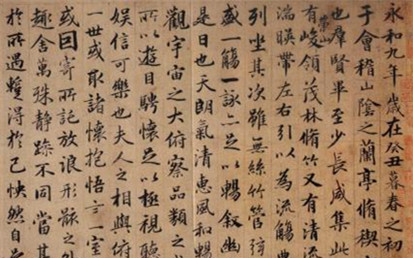 永和九年歲在癸丑暮春之初
于會稽山陰之蘭亭脩稧
也羣賢畢至少長咸集此
有崇山峻領茂林脩竹又有清流
湍暎帶左右引以為流觴曲
列坐其次雖無絲竹管弦
盛一觴一詠亦足以暢叙幽
是日也天朗氣清惠風和暢
觀宇宙之大俯察品類之
所以遊目騁懷足以極視聽
娛信可樂也夫人之相與俯
一世或取諸懷抱悟言一室
或因寄所託放浪形骸之外
趣舍萬殊靜躁不同當其
於所遇蹔得於己怏然自